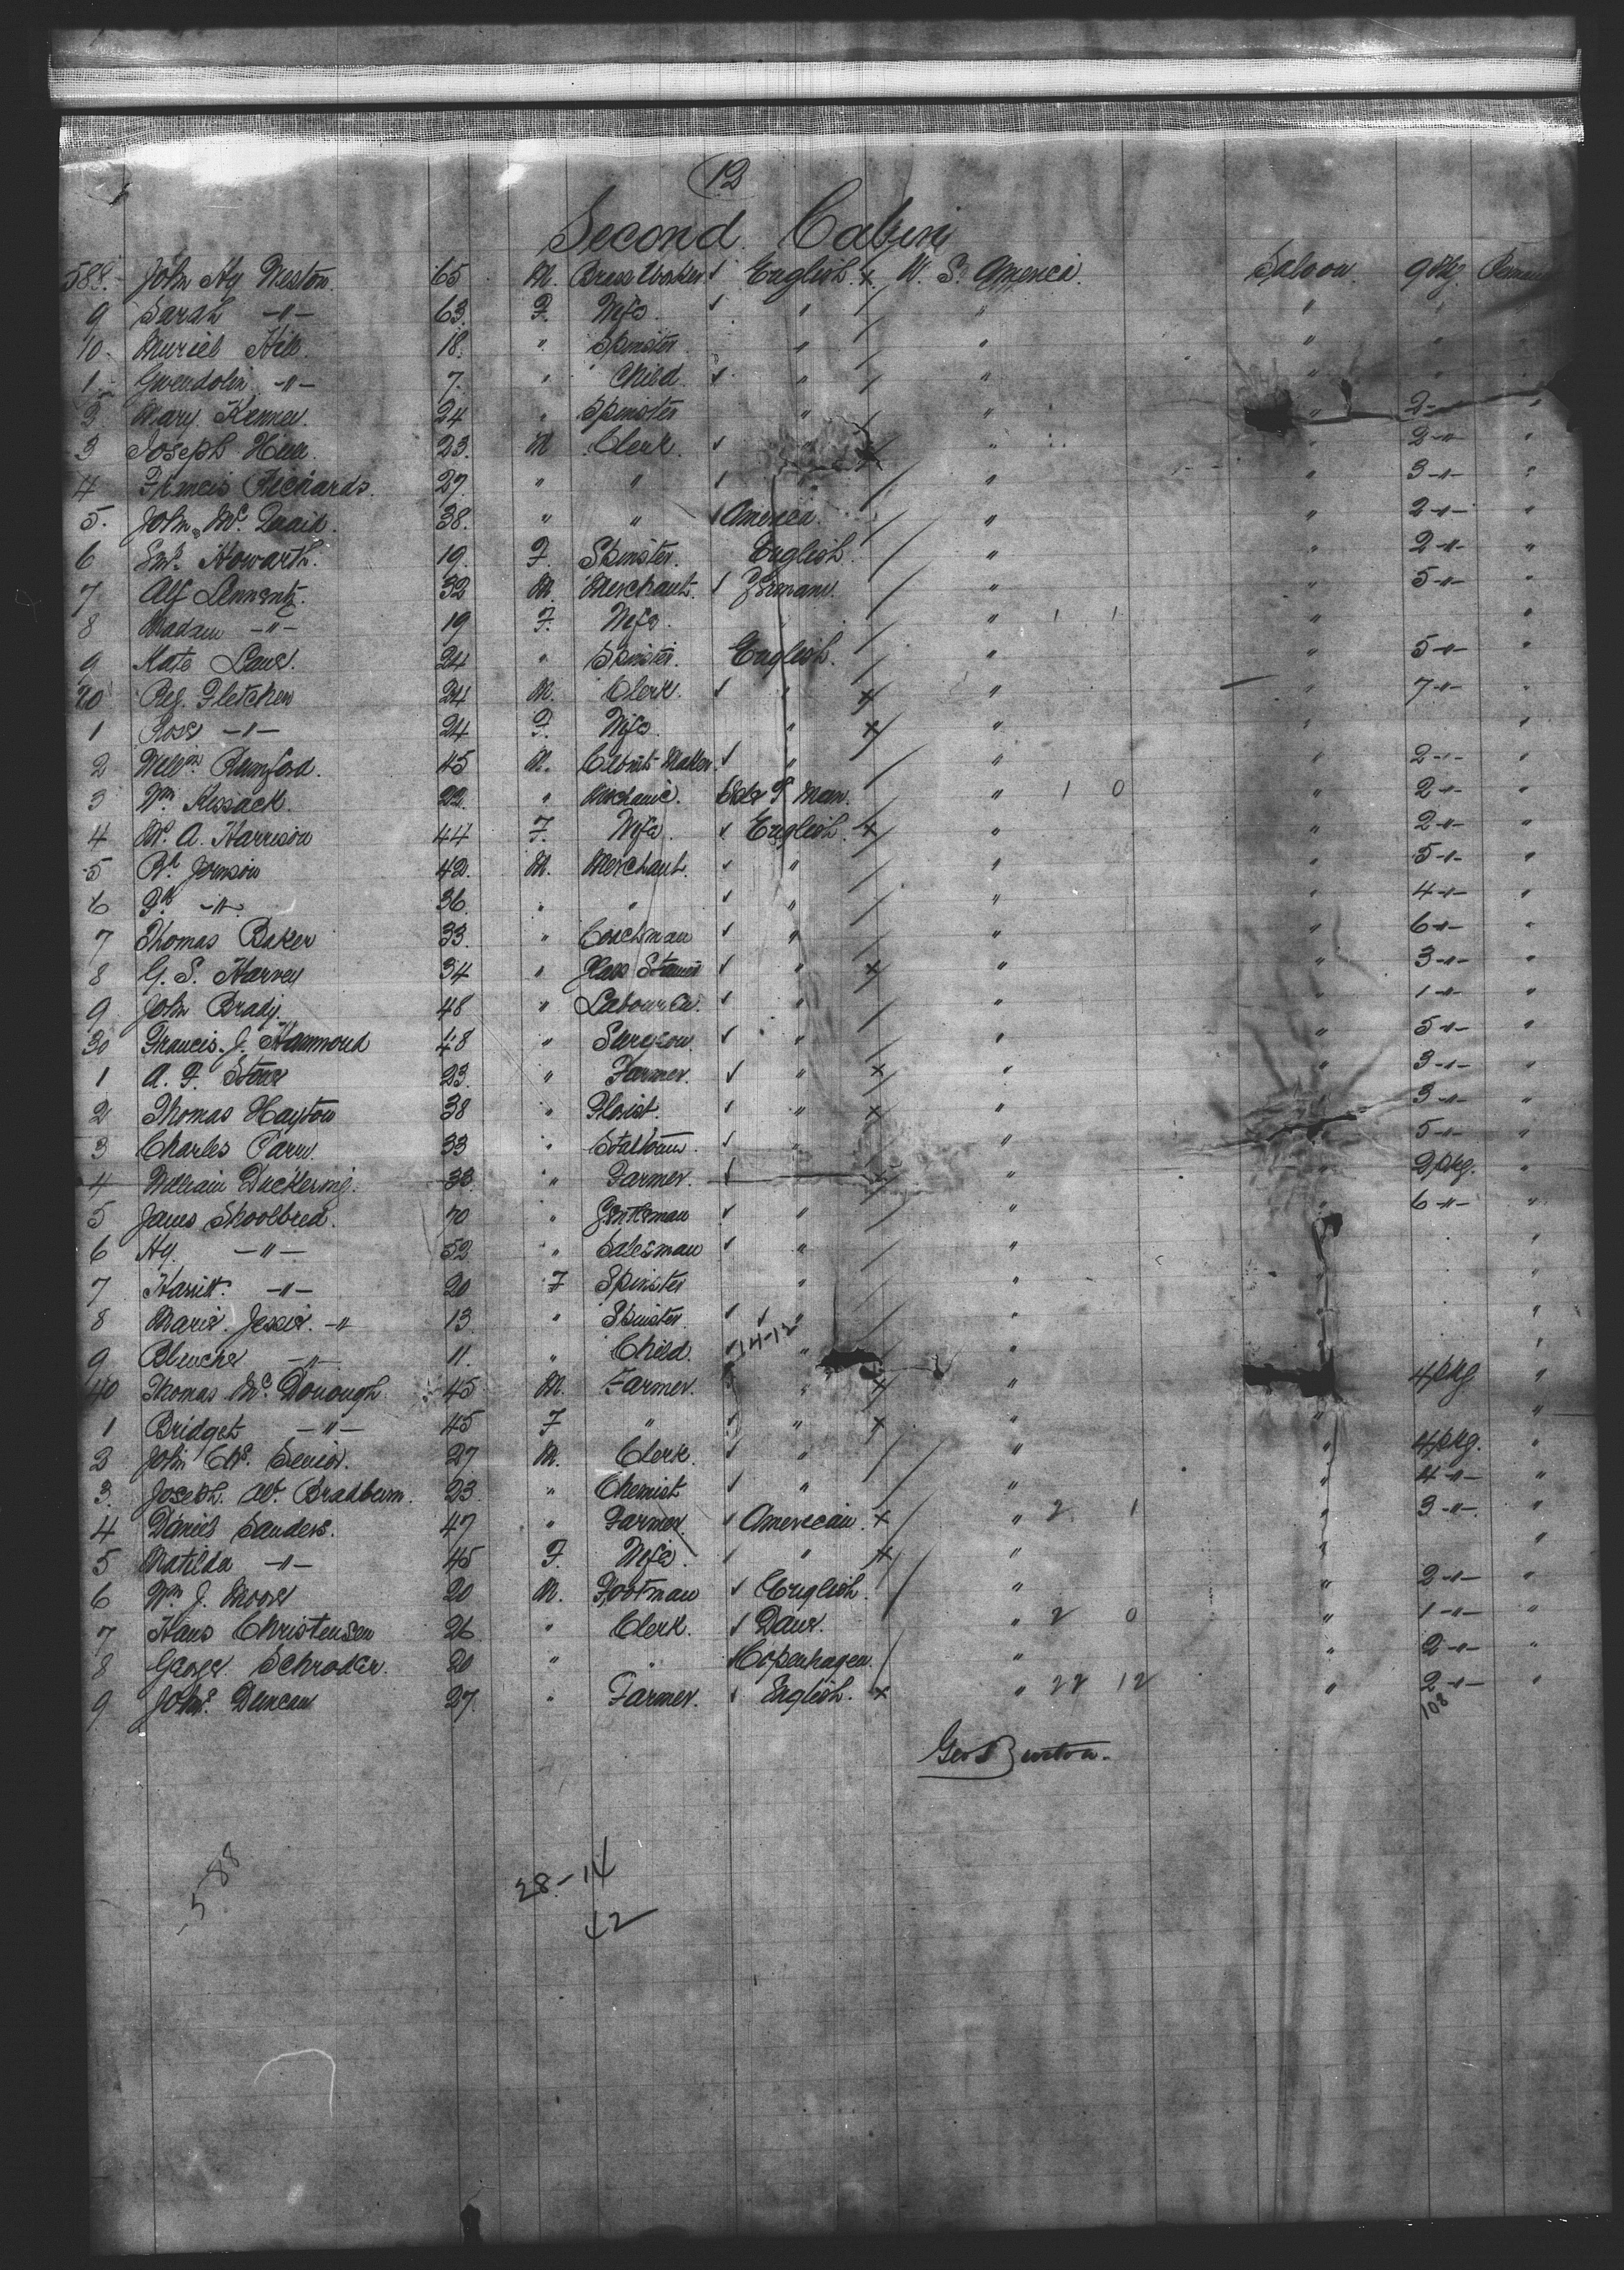 12
Second Cabin
588. John Hy Weston 65 M. Brass Worker English. U. S. America. Saloon 9 Pkg.
9 Sarah -"- 63. F. Wife " " " "
10. Muriel Hill 18. " Spinster " " " "
1. Gwendolin -"- 7. " Child " " " "
2 Mary 24 " Spinster " " " 2 -"- "
3 Joseph 23. M Clerk " " " 2 -"- "
4 Francis Richards. 27. " " " " " 3 -"- "
5. John Mc Quaid. 38. " " America. " " 2 -"- "
6 Howarth. 19. F. Spinster. English. " " 2 -"- "
7 Alf 32 M. Merchant. German. " " 5 -"- "
8 Madam -"- 19 F. Wife " " 1 1 " "
9 Kate 24 " Spinster. English. " " 5 -"- "
20 Reg. Fletcher 24 M. Clerk. " " " 7 -"- "
1 Rose -"- 24 F. Wife. " " " "
2 Rumford. 45 M. Cabinet Maker. " " " 2 -"- "
3 Wm Kissack. 22. " Mechanic. Isle of Man. " 1 0 " 2 -"- "
4 M. A. Harrison 44 F. Wife. English. " " 2 -"- "
5 42. M. Merchant. " " " 5 -"- "
6 -"- 36. " " " " " 4 -"- "
7 Thomas Baker 33. " Coachman " " " 6 -"- "
8 G. S. Harvey 34 " Glass Stainer " " " 3 -"- "
9 John Brady. 48 " Labourer. " " " 1 -"- "
30 Francis J. Hammond 48 " Surgeon. " " " 5 -"- "
1 A. F. 23. " Farmer. " " " 3 -"- "
2 Thomas Hayton 38 " Florist. " " " 3 -"- "
3 Charles 33 " " " " 5 -"- "
4 William Duckering. 38. " Farmer. " " 2 pkg. "
5 James Shoolbred. 70 " Gentleman " " " 6 -"- "
6 Hy. -"- 52 " Salesman " " "
7 Harriet. -"- 20 F Spinster " " " "
8 Marie. Jessie. -"- 13 " Spinster. " " " "
9 Blanche -"- 11. " Child. 14-12 " " " "
40 Thomas Mc Donough 45 M. Farmer. " " 4 pkg "
1 Bridget -"- 45 F " " " " "
2 John 27 M. Clerk. " " " 4 pkg. "
3. Joseph. W. Bradburn. 23. " Chemist " " " 4 -"- "
4 Daniel Sanders. 47 " Farmer. American. " 2 1 " 3 -"- "
5 Matilda -"- 45 F. Wife. " " " "
6 Wm J. Moore 20 M. Footman English. " " 2 -"- "
7 Hans Christensen 26 " Clerk. Dane. " 2 0 " 1 -"- "
8 George Schroder. 20 " " Copenhagen. " " 2 -"- "
9 Duncan 27. " Farmer. English. " 22 12 " 2 -"- "
108
Geo Burton.
588
28-14
42